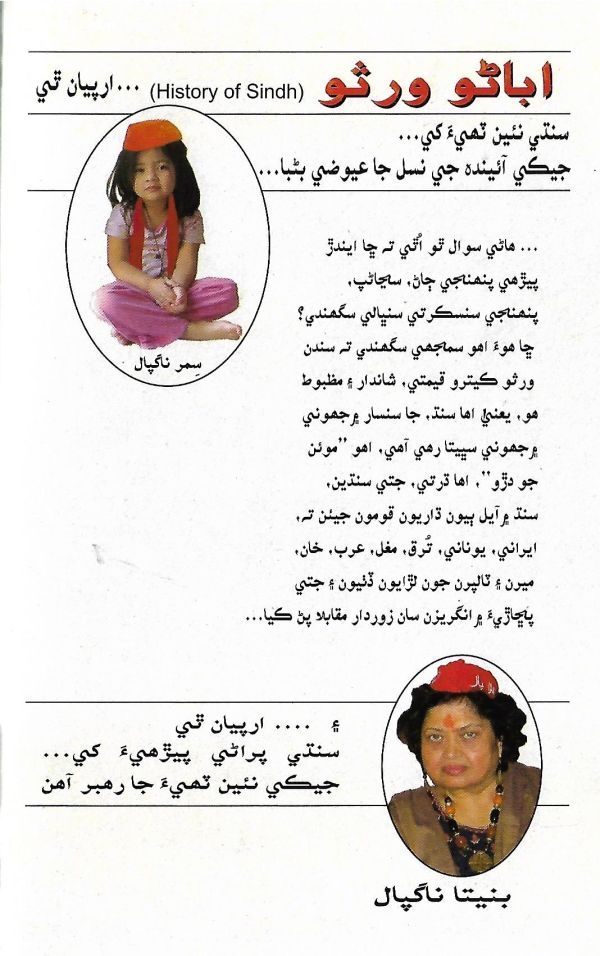 اباڻو ورثو (History of Sindh) ...ارپيان ٿي
سنڌي نئين ٽهيءَ کي...
جيڪي آئينده جي نسل جا عيوضي بڻبا...
... هاڻي سوال ٿو اُٿي ته ڇا ايندڙ
پيڙهي پنهنجي ڄاڻ، سڃاڻپ،
پنهنجي سنسڪرتي سنڀالي سگهندي؟
ڇا هوءَ اهو سمجهي سگهندي ته سندن
ورثو ڪيترو قيمتي، شاندار ۽ مظبوط
هو، يعنيٰ اها سنڌ، جا سنسار ۾ جهوني
۾ جهوني سڀيتا رهي آهي، اهو ”موئن
جو دڙو“، اها ڌرتي، جتي سنڌين،
سنڌ ۾ آيل ٻيون ڌاريون قومون جيئن ته،
ايراني، يوناني، تُرق، مغل، عرب، خان،
ميرن ۽ ٽالپرن جون لڙايون ڏٺيون ۽ جتي
پڇاڙيءَ ۾ انگريزن سان زوردار مقابلا پڻ ڪيا...
سِمر ناگپال
۽ .... ارپيان ٿي
سنڌي پراڻي پيڙهيءَ کي...
جيڪي نئين ٽهيءَ جا رهبر آهن
بنيتا ناگپال